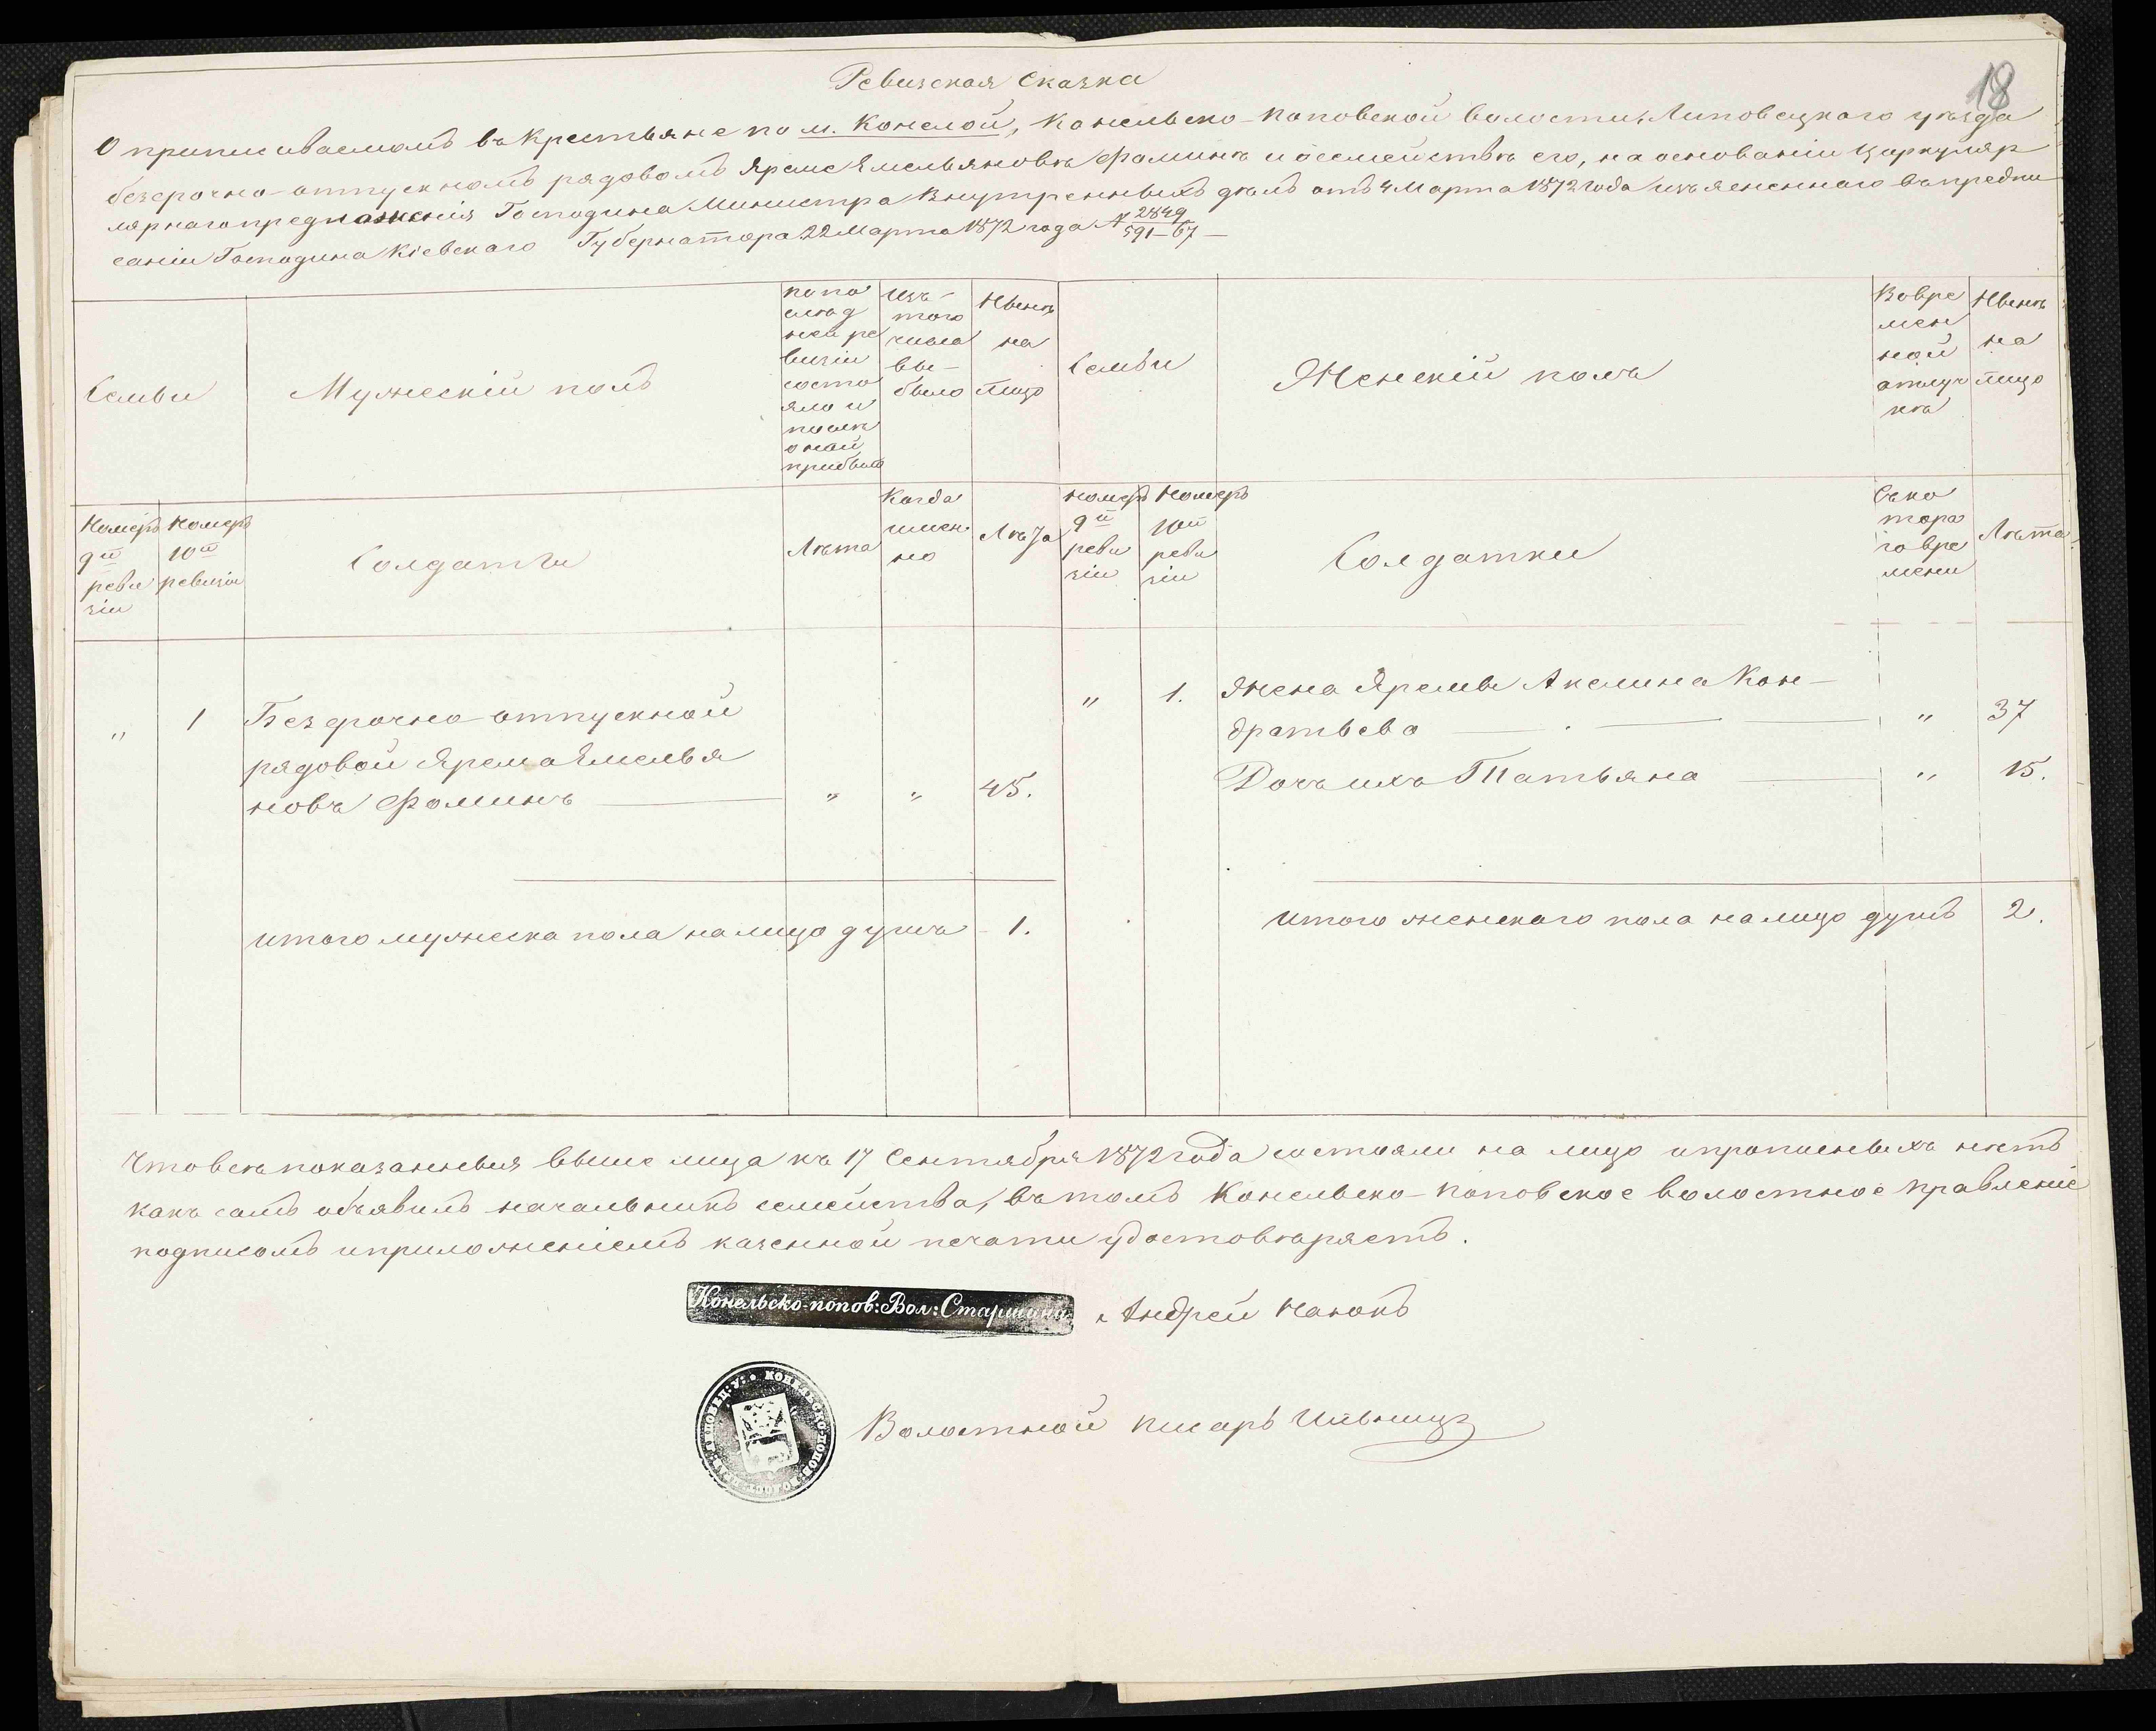 18
Ревизская сказка
О приписываемомъ въ крестьяне по м. Конелой, Конельско-Поповской волости, Липовецкаго уѣзда
безсрочно-отпускномъ рядовомъ Яреме Ямельяновѣ Фоминѣ и о семействѣ его, на основаніи Циркуляр
лярнаго предложенія Господина Министра Внутренныхъ дѣлъ отъ 4 Марта 1872 года изъясненнаго въ предпи
саніи Господина Кіевскаго Губернатора 22 Марта 1872 года № 2849/591-67 —
Семьи
Мужескій полъ
по по
слѣд
ней ре
визіи
состо
яло и
послѣ
оной
прибыло
изъ-
того
числа
вы-
было
Нынѣ
на
лицо
Семьи
Женскій полъ
Во вре
мен
ной
отлуч
кѣ
Нынѣ
на
лицо
Номеръ
9й
реви
зіи
Номеръ
10й
ревизіи
Солдаты
Лѣта
Когда
имен
но
Лѣта
Номеръ
9й
реви
зіи
Номеръ
10й
реви
зіи
Солдатки
Съ ко
тора
го вре
мени
Лѣта
„ 1 Безсрочно-отпускной
рядовой Ярема Ямелья
новъ Фоминъ — „ „ 45.
„ 1. Жена Яремы Акелина Кон-
дратьева — „ 37
Дочь ихъ Татьяна — „ 15.
итого мужеска пола на лицо душъ 1.
итого женскаго пола на лицо душъ 2.
Что всѣ показанныя выше лица къ 17 Сентября 1872 года состояли на лицо и прописныхъ нѣтъ
какъ самъ объявилъ начальникъ семейства, въ томъ Конельско-Поповское волостное правленіе
подписомъ и приложеніемъ казенной печати удостовѣряетъ.
Конельско-попов: Вол: Старшина Андрей
Волостной писарь